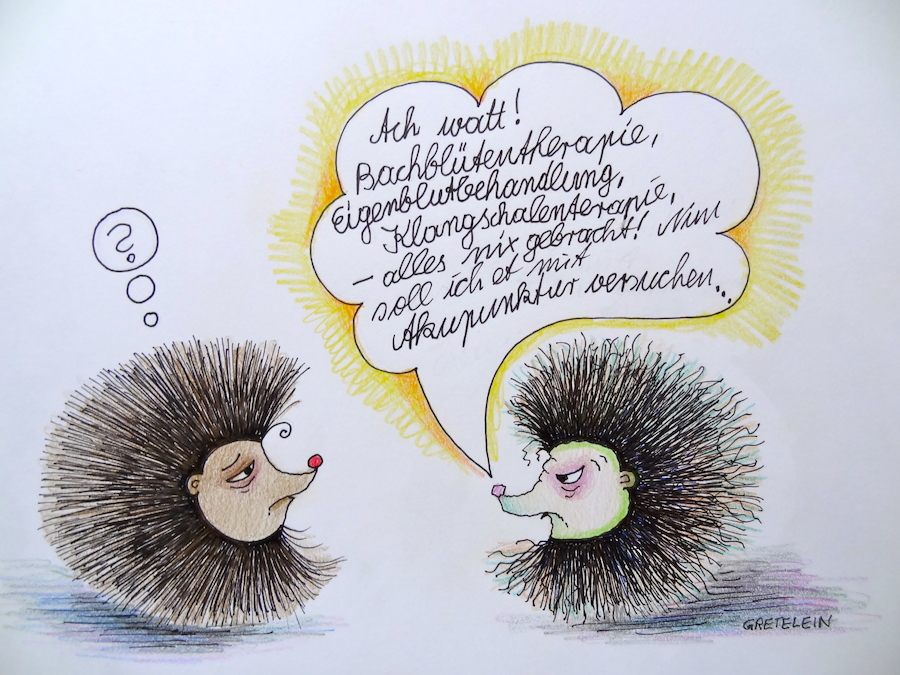 ?
Ach watt!
Bachblütentherapie,
Eigenblutbehandlung,
Klangschalenterapie,
– alles nix gebracht! Nun
soll ich et mit
Akupunktur versuchen...
GRETELEIN